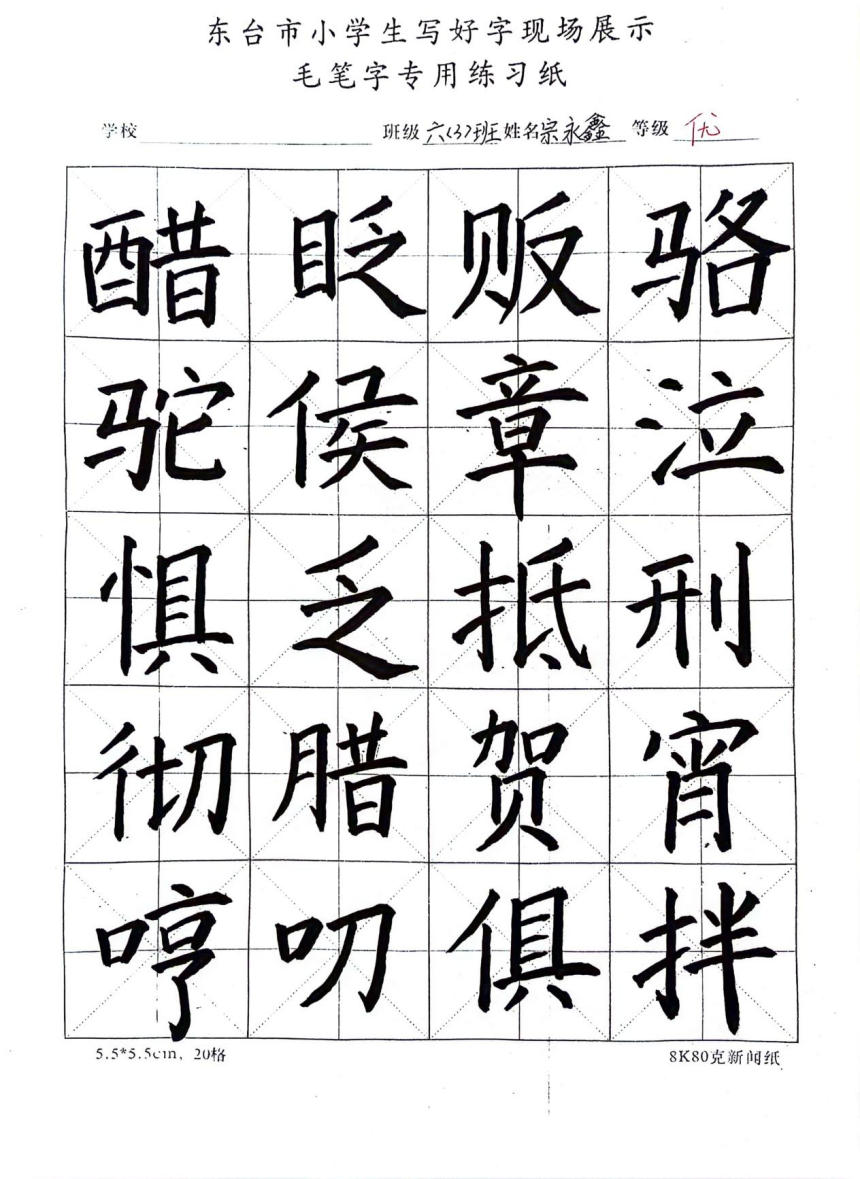 东台市小学生写好字现场展示
毛笔字专用练习纸
学校 班级 六(3)班 姓名 宗永鑫 等级 优
醋眨贩骆
驼侯章泣
惧乏抵刑
彻腊贺宵
哼叨俱拌
5.5*5.5cm, 20格 8K80克新闻纸